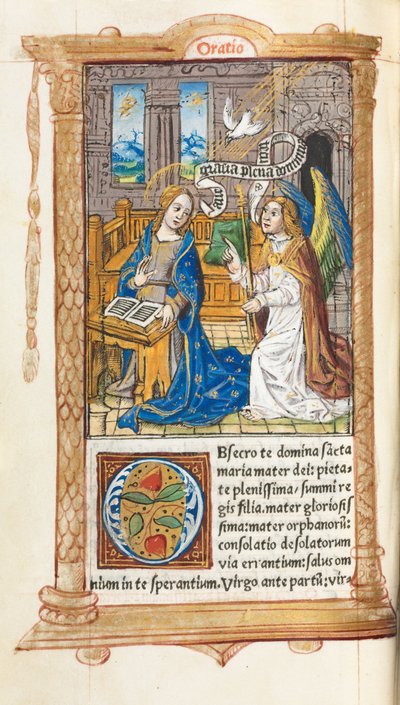 Oratio
gratia plena
OBsecro te domina sācta
maria mater dei: pieta
te plenissima/ summi re
gis filia. mater gloriosis
sima: mater orphanorū:
consolatio desolatorum
via errantium: salus om
nium in te sperantium. Virgo ante partū: vir